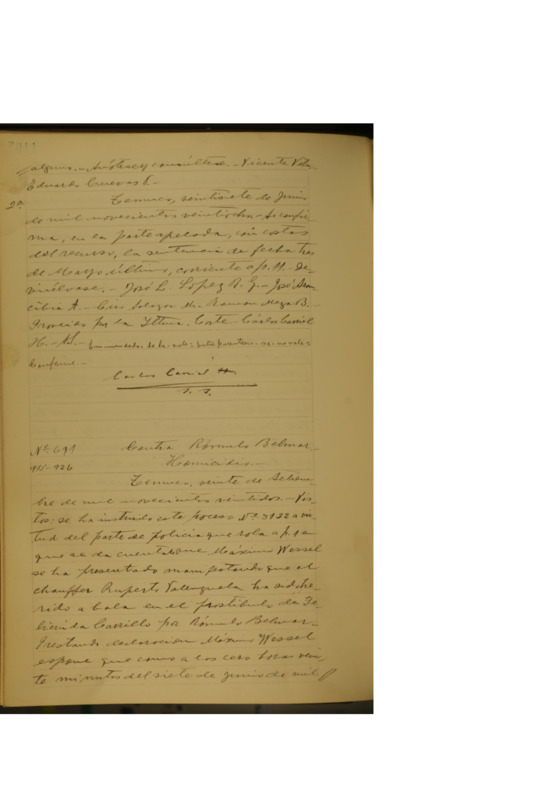 alguno.- Anótese y consúltese.- Vicente
Eduardo Cuevas V.-
2ª Temuco, veintisiete de Junio
de mil novecientos veintiocho.- Se confir
ma, en la parte apelada, con costas
del recurso, la sentencia de fecha tres
de Mayo último, corriente a p. 11.- De-
vuélvase.- José L. López A. G.- José
Luis Salazar Ramón Meza B.
Proveída por la Iltma. Corte.- Carlos Carriel
H.- S.-
Conforme.-
Carlos Carriel H
S. S.
Nº 691 Contra Rómulo Belmar.-
915-926 Homicidio.-
Temuco, veinte de Setiem
bre de mil novecientos veintidos.- Vis
tos: se ha instruido este proceso Nº 3122 a vir
tud del parte de policía que rola a p. 1 en
que se da cuenta que Máximo Wessel
se ha presentado manifestando que el
chauffer Ruperto Valenzuela ha sido he-
rido a bala en el prostíbulo de Fe-
licinda Carrillo por Rómulo Belmar.-
Prestando declaración Máximo Wessel
espone que como a las cero horas vein
te minutos del siete de Junio de mil